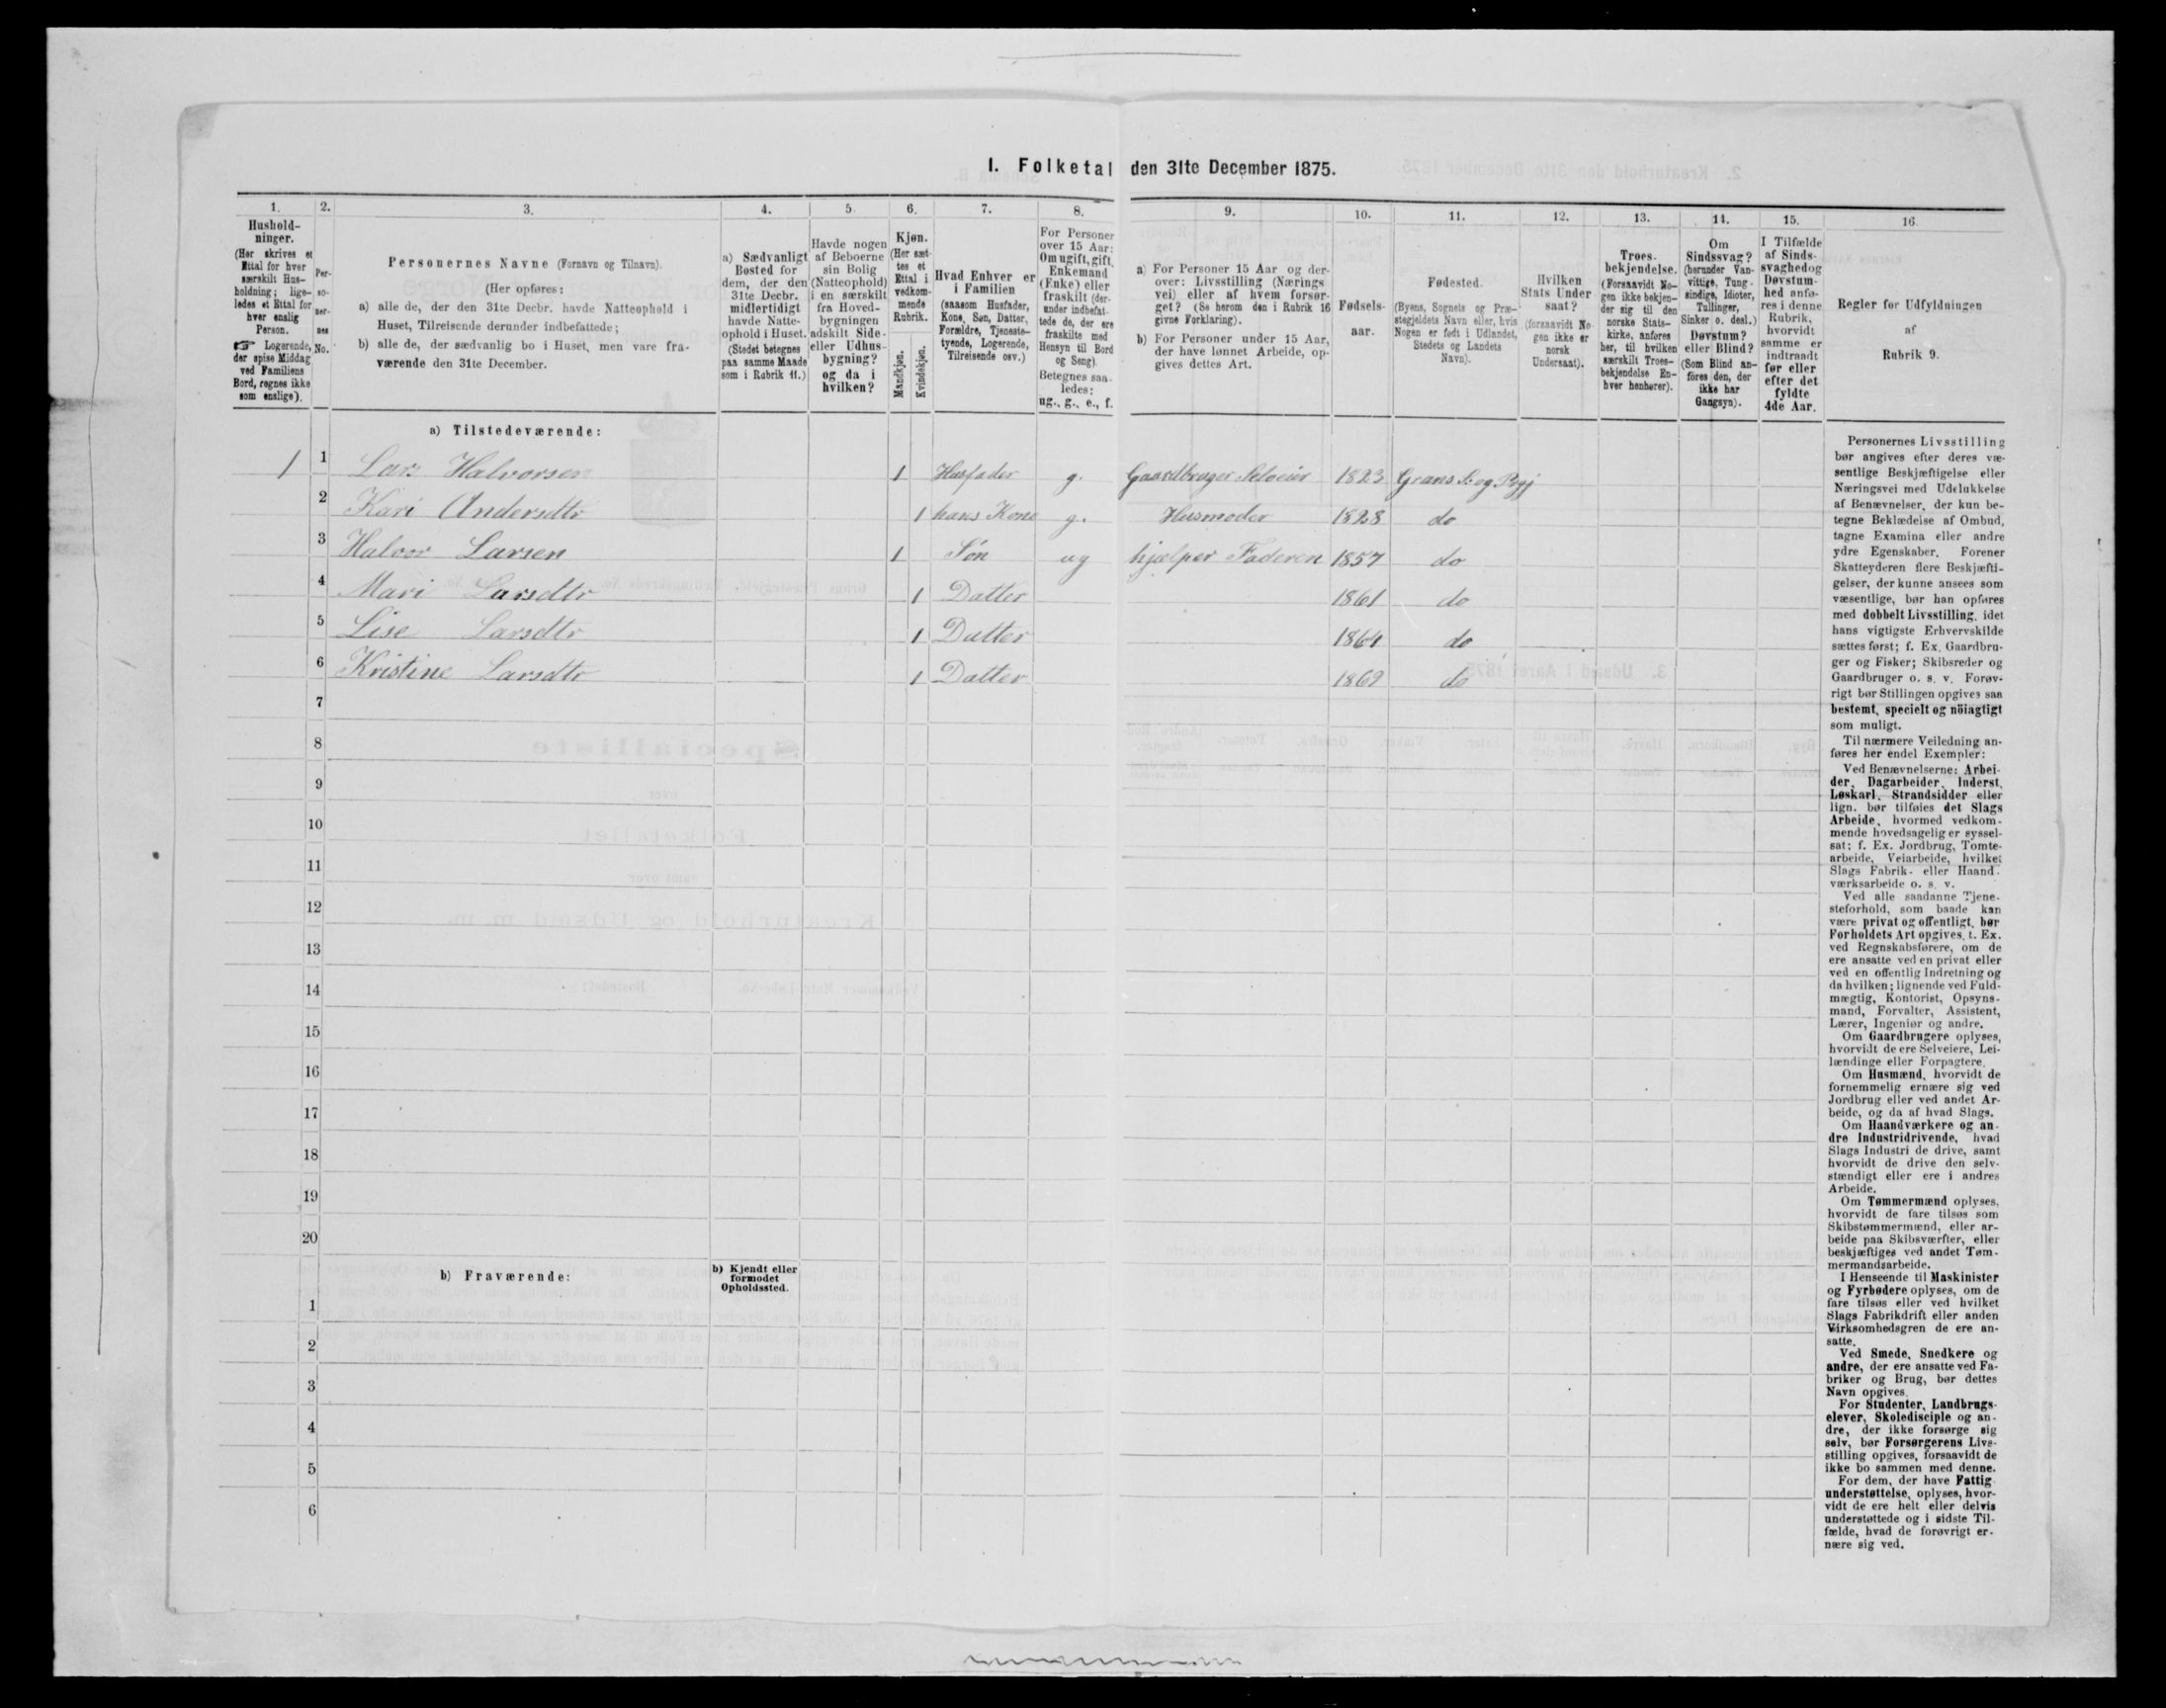 I. Folketal den 31te December 1875.
1. 2. 3. 4. 5. 6. 7. 8. 9. 10. 11. 12. 13. 14. 15. 16.
Hushold-
ninger.
(Her skrives et
Ettal for hver
særskilt Hus-
holdning; lige-
ledes et Ettal for
hver enslig
Person.
☞ Logerende,
der spise Middag
ved Familiens
Bord, regnes ikke
som enslige).
Per-
so-
ner-
nes
No.
Personernes Navne (Fornavn og Tilnavn).
(Her opføres:
a) alle de, der den 31te Decbr. havde Natteophold i
Huset, Tilreisende derunder indbefattede;
b) alle de, der sædvanlig bo i Huset, men vare fra-
værende den 31te December.
a) Sædvanligt
Bosted for
dem, der den
31te Decbr.
midlertidigt
havde Natte-
ophold i Huset.
(Stedet betegnes
paa samme Maade
som i Rubrik 11.)
Havde nogen
af Beboerne
sin Bolig
(Natteophold)
i en særskilt
fra Hoved-
bygningen
adskilt Side-
eller Udhus-
bygning?
og da i
hvilken?
Kjøn.
(Her sæt-
tes et
Ettal i
vedkom-
mende
Rubrik.
Mandkjøn.
Kvindekjøn.
Hvad Enhver er
i Familien
(saasom Husfader,
Kone, Søn, Datter,
Forældre, Tjeneste-
tyende, Logerende,
Tilreisende osv.)
For Personer
over 15 Aar:
Om ugift, gift,
Enkemand
(Enke) eller
fraskilt (der-
under indbefat-
tede de, der ere
fraskilte med
Hensyn til Bord
og Seng).
Betegnes saa-
ledes:
ug., g., e., f.
a) For Personer 15 Aar og der-
over: Livsstilling (Nærings
vei) eller af hvem forsør-
get? (Se herom den i Rubrik 16
givne Forklaring).
b) For Personer under 15 Aar,
der have lønnet Arbeide, op-
gives dettes Art.
Fødsels-
aar.
Fødested.
(Byens, Sognets og Præ-
stegjeldets Navn eller, hvis
Nogen er født i Udlandet,
Stedets og Landets
Navn).
Hvilken
Stats Under
saat?
(forsaavidt No-
gen ikke er
norsk
Undersaat).
Troes-
bekjendelse.
(Forsaavidt No-
gen ikke bekjen-
der sig til den
norske Stats-
kirke, anføres
her, til hvilken
særskilt Troes-
bekjendelse En-
hver henhører).
Om
Sindssvag?
(herunder Van-
vittige, Tung-
sindige, Idioter,
Tullinger,
Sinker o. desl.)
Døvstum?
eller Blind?
(Som Blind an-
føres den, der
ikke har
Gangsyn).
I Tilfælde
af Sinds-
svaghed og
Døvstum-
hed anfø-
res i denne
Rubrik,
hvorvidt
samme er
indtraadt
før eller
efter det
fyldte
4de Aar.
Regler før Udfyldningen
af
Rubrik 9.
a) Tilstedeværende:
1 1 Lars Halvorsen 1 Husfader g. Gaardbruger Selveier 1823 Grans S. og Pgj
2 Kari Andersdtr 1 hans Kone g. Husmoder 1828 do
3 Halvor Larsen 1 Søn ug hjælper Faderen 1857 do
4 Mari Larsdtr 1 Datter 1861 do
5 Lise Larsdtr 1 Datter 1864 do
6 Kristine Larsdtr 1 Datter 1869 do
7
8
9
10
11
12
13
14
15
16
17
18
19
20
b) Fraværende:
b) Kjendt eller
formodet
Opholdssted.
1
2
3
4
5
6
Personernes Livsstilling
bør angives efter deres væ-
sentlige Beskjæftigelse eller
Næringsvei med Udelukkelse
af Benævnelser, der kun be-
tegne Beklædelse af Ombud,
tagne Examina eller andre
ydre Egenskaber. Forener
Skatteyderen flere Beskjæfti-
gelser, der kunne ansees som
væsentlige, bør han opføres
med dobbelt Livsstilling, idet
hans vigtigste Erhvervskilde
sættes først; f. Ex. Gaardbru-
ger og Fisker; Skibsreder og
Gaardbruger o. s. v. Forøv-
rigt bør Stillingen opgives saa
bestemt, specielt og nöiagtigt
som muligt.
Til nærmere Veiledning an-
føres her endel Exempler:
Ved Benævnelserne: Arbei-
der, Dagarbeider, Inderst,
Løskarl, Strandsidder eller
lign. bør tilføies det Slags
Arbeide, hvormed vedkom-
mende hovedsagelig er syssel-
sat; f. Ex. Jordbrug, Tomte-
arbeide, Veiarbeide, hvilket
Slags Fabrik- eller Haand-
værksarbeide o. s. v.
Ved alle saadanne Tjene-
steforhold, som baade kan
være privat og offentligt, bør
Forholdets Art opgives, f. Ex.
ved Regnskabsførere, om de
ere ansatte ved en privat eller
ved en offentlig Indretning og
da hvilken; lignende ved Fuld-
mægtig, Kontorist, Opsyns-
mand, Forvalter, Assistent,
Lærer, Ingeniør og andre.
Om Gaardbrugere oplyses,
hvorvidt de ere Selveiere, Lei-
lændinge eller Forpagtere.
Om Husmænd, hvorvidt de
fornemmelig ernære sig ved
Jordbrug eller ved andet Ar-
beide, og da af hvad Slags.
Om Haandværkere og an-
dre Industridrivende, hvad
Slags Industri de drive, samt
hvorvidt de drive den selv-
stændigt eller ere i andres
Arbeide.
Om Tømmermænd oplyses,
hvorvidt de fare tilsøs som
Skibstømmermænd, eller ar-
beide paa Skibsværfter, eller
beskjæftiges ved andet Tøm-
mermandsarbeide.
I Henseende til Maskinister
og Fyrbødere oplyses, om de
fare tilsøs eller ved hvilket
Slags Fabrikdrift eller anden
Virksomhedsgren de ere an-
satte.
Ved Smede, Snedkere og
andre, der ere ansatte ved Fa-
briker og Brug, bør dettes
Navn opgives.
For Studenter, Landbrugs-
elever, Skoledisciple og an-
dre, der ikke forsørge sig
selv, bør Forsørgerens Livs-
stilling opgives, forsaavidt de
ikke bo sammen med denne.
For dem, der have Fattig-
understøttelse, oplyses, hvor-
vidt de ere helt eller delvis
understøttede og i sidste Til-
fælde, hvad de forøvrigt er-
nære sig ved.